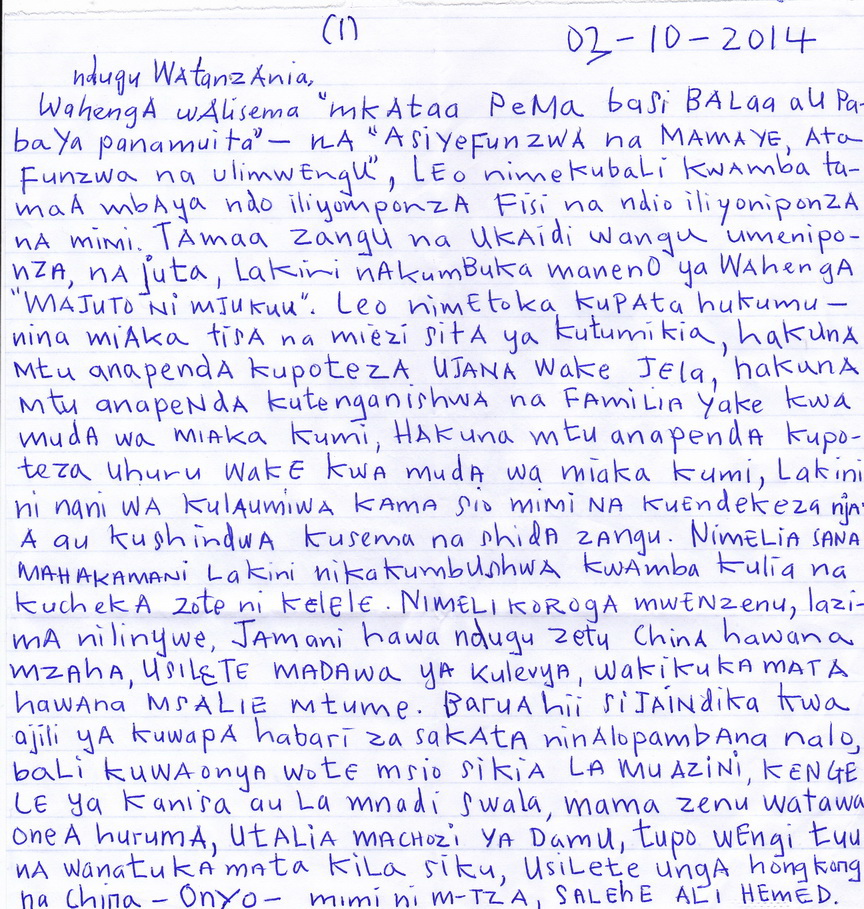 (1)
03-10-2014
ndugu WAtanzAnia,
WahengA wAlisema "mkAtaa PeMa basi BALaa aU Pa-
baYa panamuita" - nA "ASiYeFunzwA na MAMAYE, Ata
Funzwa na ulimwEngU", LEo nimekubaLi KwAmba ta-
maA mbAya ndo iliyomponzA Fisi na ndio iliyoniponzA
nA mimi. TAmaa zangu na UKAidi wangu umenipo-
nZA, nA juta, Lakini nAkumBuka manenO ya WAHengA
"MAJUTO Ni mJUKUU". Leo nimEtoka kuPAta hukumu -
nina miAka tisA na miezi sitA ya kutumikia, hakunA
Mtu anapendA kupotezA UJANA Wake JEla, hakunA
Mtu anapeNdA kutenganishWA na FAMiLiA Yake kwA
mudA wa MIAka kumi, HAKuna mtu anapendA kupo-
teza uhuru WakE KWA mudA wa miaka kumi, Lakini
ni nani WA KulAumiwA KAMA Sio mimi NA KuEndekeza njA-
A au kushindwA kusema na shidA zangu. NiMELiA SANA
MAHAKAMANi LAkini nikakumbUshwA kwAmba kulia na
kuchekA Zote ni KeLELE. NIMELi KOROgA mwENzenu, lazi-
mA nilinywe, JAmani hawa ndugu zetu ChinA hawana
MZAhA, USiLETE MADAwa YA Kulevya, wakiKUKA MATA
hawAna MSALIE Mtume. BaruA hii SiJAiNdika kwa
ajili yA kuwapA habari za sakAtA ninAlopambAna nalo,
baLi kuWAonyA WotE msio sikiA LA MU AZiNi, KENGE
LE ya Kanisa au La mnadi Swala, mama zenu watawa
oneA hurumA, UtALiA MAChOZi YA Damu, tupo wEngi tuu
nA wanatuKA mAtA KiLa siku, USiLete ungA hongkong
na China - Onyo - mimi ni M-TZA, SALEhE ALi HEMED.